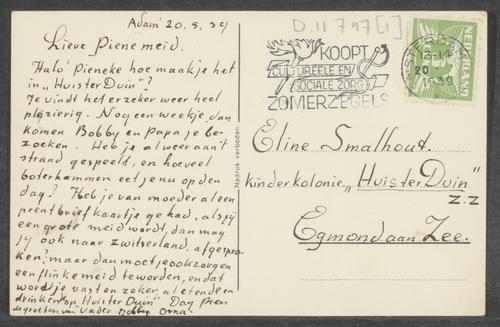 Adam' 20, 5, 39
Lieve Pienemeid.
Halo' Pieneke hoe maak je het
in „Huis ter Duin"?
Je vindt het er zeker weer heel
plezierig. Nog een weekje, dan
komen Bobby en Papa je be-
zoeken. Heb je al weer aan it
strand gespeeld, en hoeveel
boterhammen eet je nu op den
dag? Heb je van moeder al een
prentbriefkaartje gehad, als jij
een grote meid wordt, dan mag
jy ook naar Zwitserland, afgespro-
ken? maar dan moet je ook zorgen
een flinke meid te worden, en dat
wordt je vast en zeker, al etende en
drinken op „Huis ter Duin" Dag Pien
de groeten van Vader. Bobby Oma.
Nadruk verboden
D. 11 717 [1]
KOOPT
CULTUREELE EN
SOCIALE ZORG
ZOMERZEGELS
AMSTERDAM
20
1939
NEDERLAND
Eline Smalhout.
Kinderkolonie „Huis ter Duin"
Z.Z
Egmond aan Zee.